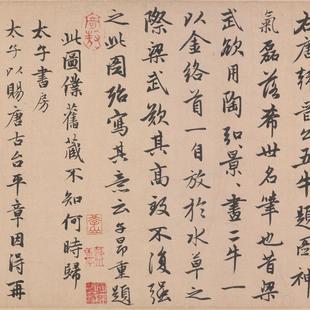 右唐韓晉公五牛圖神
氣磊落希世名筆也昔梁
武欲用陶弘景畫二牛一
以金絡首一自放於水草之
際梁武歎其高致不復強
之此圖殆寫其意云子昂重題
此圖僕舊藏不知何時歸
太子書房
太子以賜唐古台平章因得再